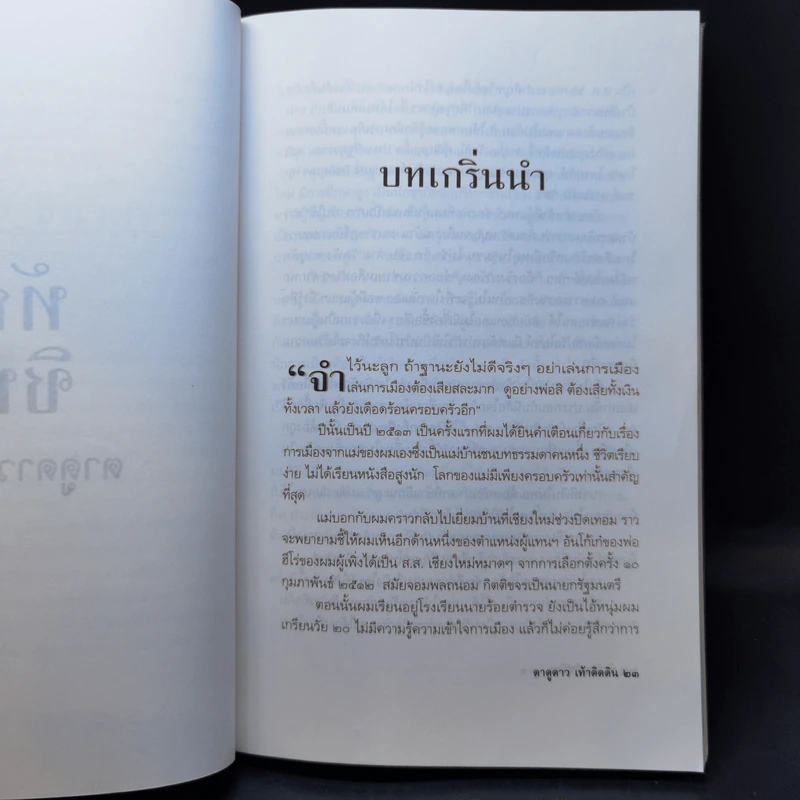 ทั
ชิ
ตาดูดาว
บทเกริ่นนำ
“จำไว้นะลูก ถ้าฐานะยังไม่ดีจริงๆ อย่าเล่นการเมือง
เล่นการเมืองต้องเสียสละมาก ดูอย่างพ่อสิ ต้องเสียทั้งเงิน
ทั้งเวลา แล้วยังเดือดร้อนครอบครัวอีก”
ปีนั้นเป็นปี ๒๕๑๓ เป็นครั้งแรกที่ผมได้ยินคำเตือนเกี่ยวกับเรื่อง
การเมืองจากแม่ของผมเองซึ่งเป็นแม่บ้านชนบทธรรมดาคนหนึ่ง ชีวิตเรียบ
ง่าย ไม่ได้เรียนหนังสือสูงนัก โลกของแม่มีเพียงครอบครัวเท่านั้นสำคัญ
ที่สุด
แม่บอกกับผมคราวกลับไปเยี่ยมบ้านที่เชียงใหม่ช่วงปิดเทอม ราว
จะพยายามชี้ให้ผมเห็นอีกด้านหนึ่งของตำแหน่งผู้แทนฯ อันโก้เก๋ของพ่อ
ฮีโร่ของผมผู้เพิ่งได้เป็น ส.ส. เชียงใหม่หมาดๆ จากการเลือกตั้งครั้ง ๑๐
กุมภาพันธ์ ๒๕๑๒ สมัยจอมพลถนอม กิตติขจรเป็นนายกรัฐมนตรี
ตอนนั้นผมเรียนอยู่โรงเรียนนายร้อยตำรวจ ยังเป็นไอ้หนุ่มผม
เกรียนวัย ๒๐ ไม่มีความรู้ความเข้าใจการเมือง แล้วก็ไม่ค่อยรู้สึกว่าการ
ตาดูดาว เท้าติดดิน ๒๓